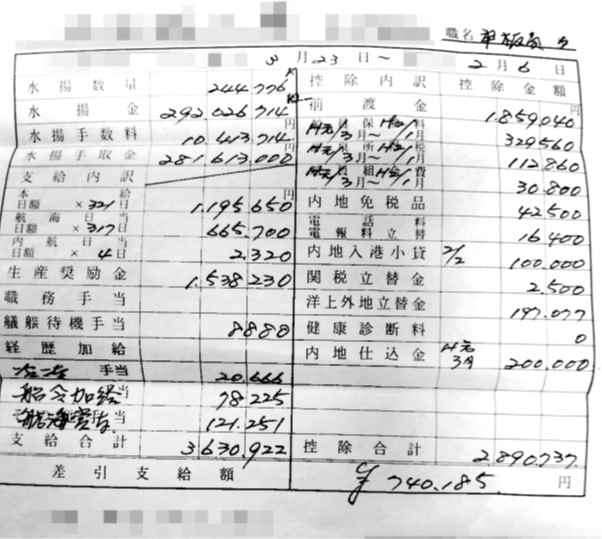 職名 甲板員
3月23日〜2月6日
水揚数量 244.776K 控除内訳 控除金額
水揚金 292.026.714 前渡金 1.859.040円
水揚手数料 10.413.714円 船員保険料 H元/3月〜H2/1月 329.560
水揚手取金 281.613.000 所得税 H元/3月〜H2/1月 112.860
支給内訳 組合費 H元/3月〜H2/1月 30.800
本給 日額×321日 1.195.650円 内地免税品 42.500
航海日当 日額×317日 665.700 電話料 電報料立替 16.400
内航日当 日額×4日 2.320 内地入港小貸 2/2 100.000
生産奨励金 1.538.230 関税立替金 2.500
職務手当 洋上外地立替金 197.077
艤装待機手当 8888 健康診断料 0
経歴加給 内地仕込金 H元 3月 200.000
手当 20.666
船令加給 78.225
121.251
支給合計 3.630.922 控除合計 2.890.737.
差引支給額 740.185.円